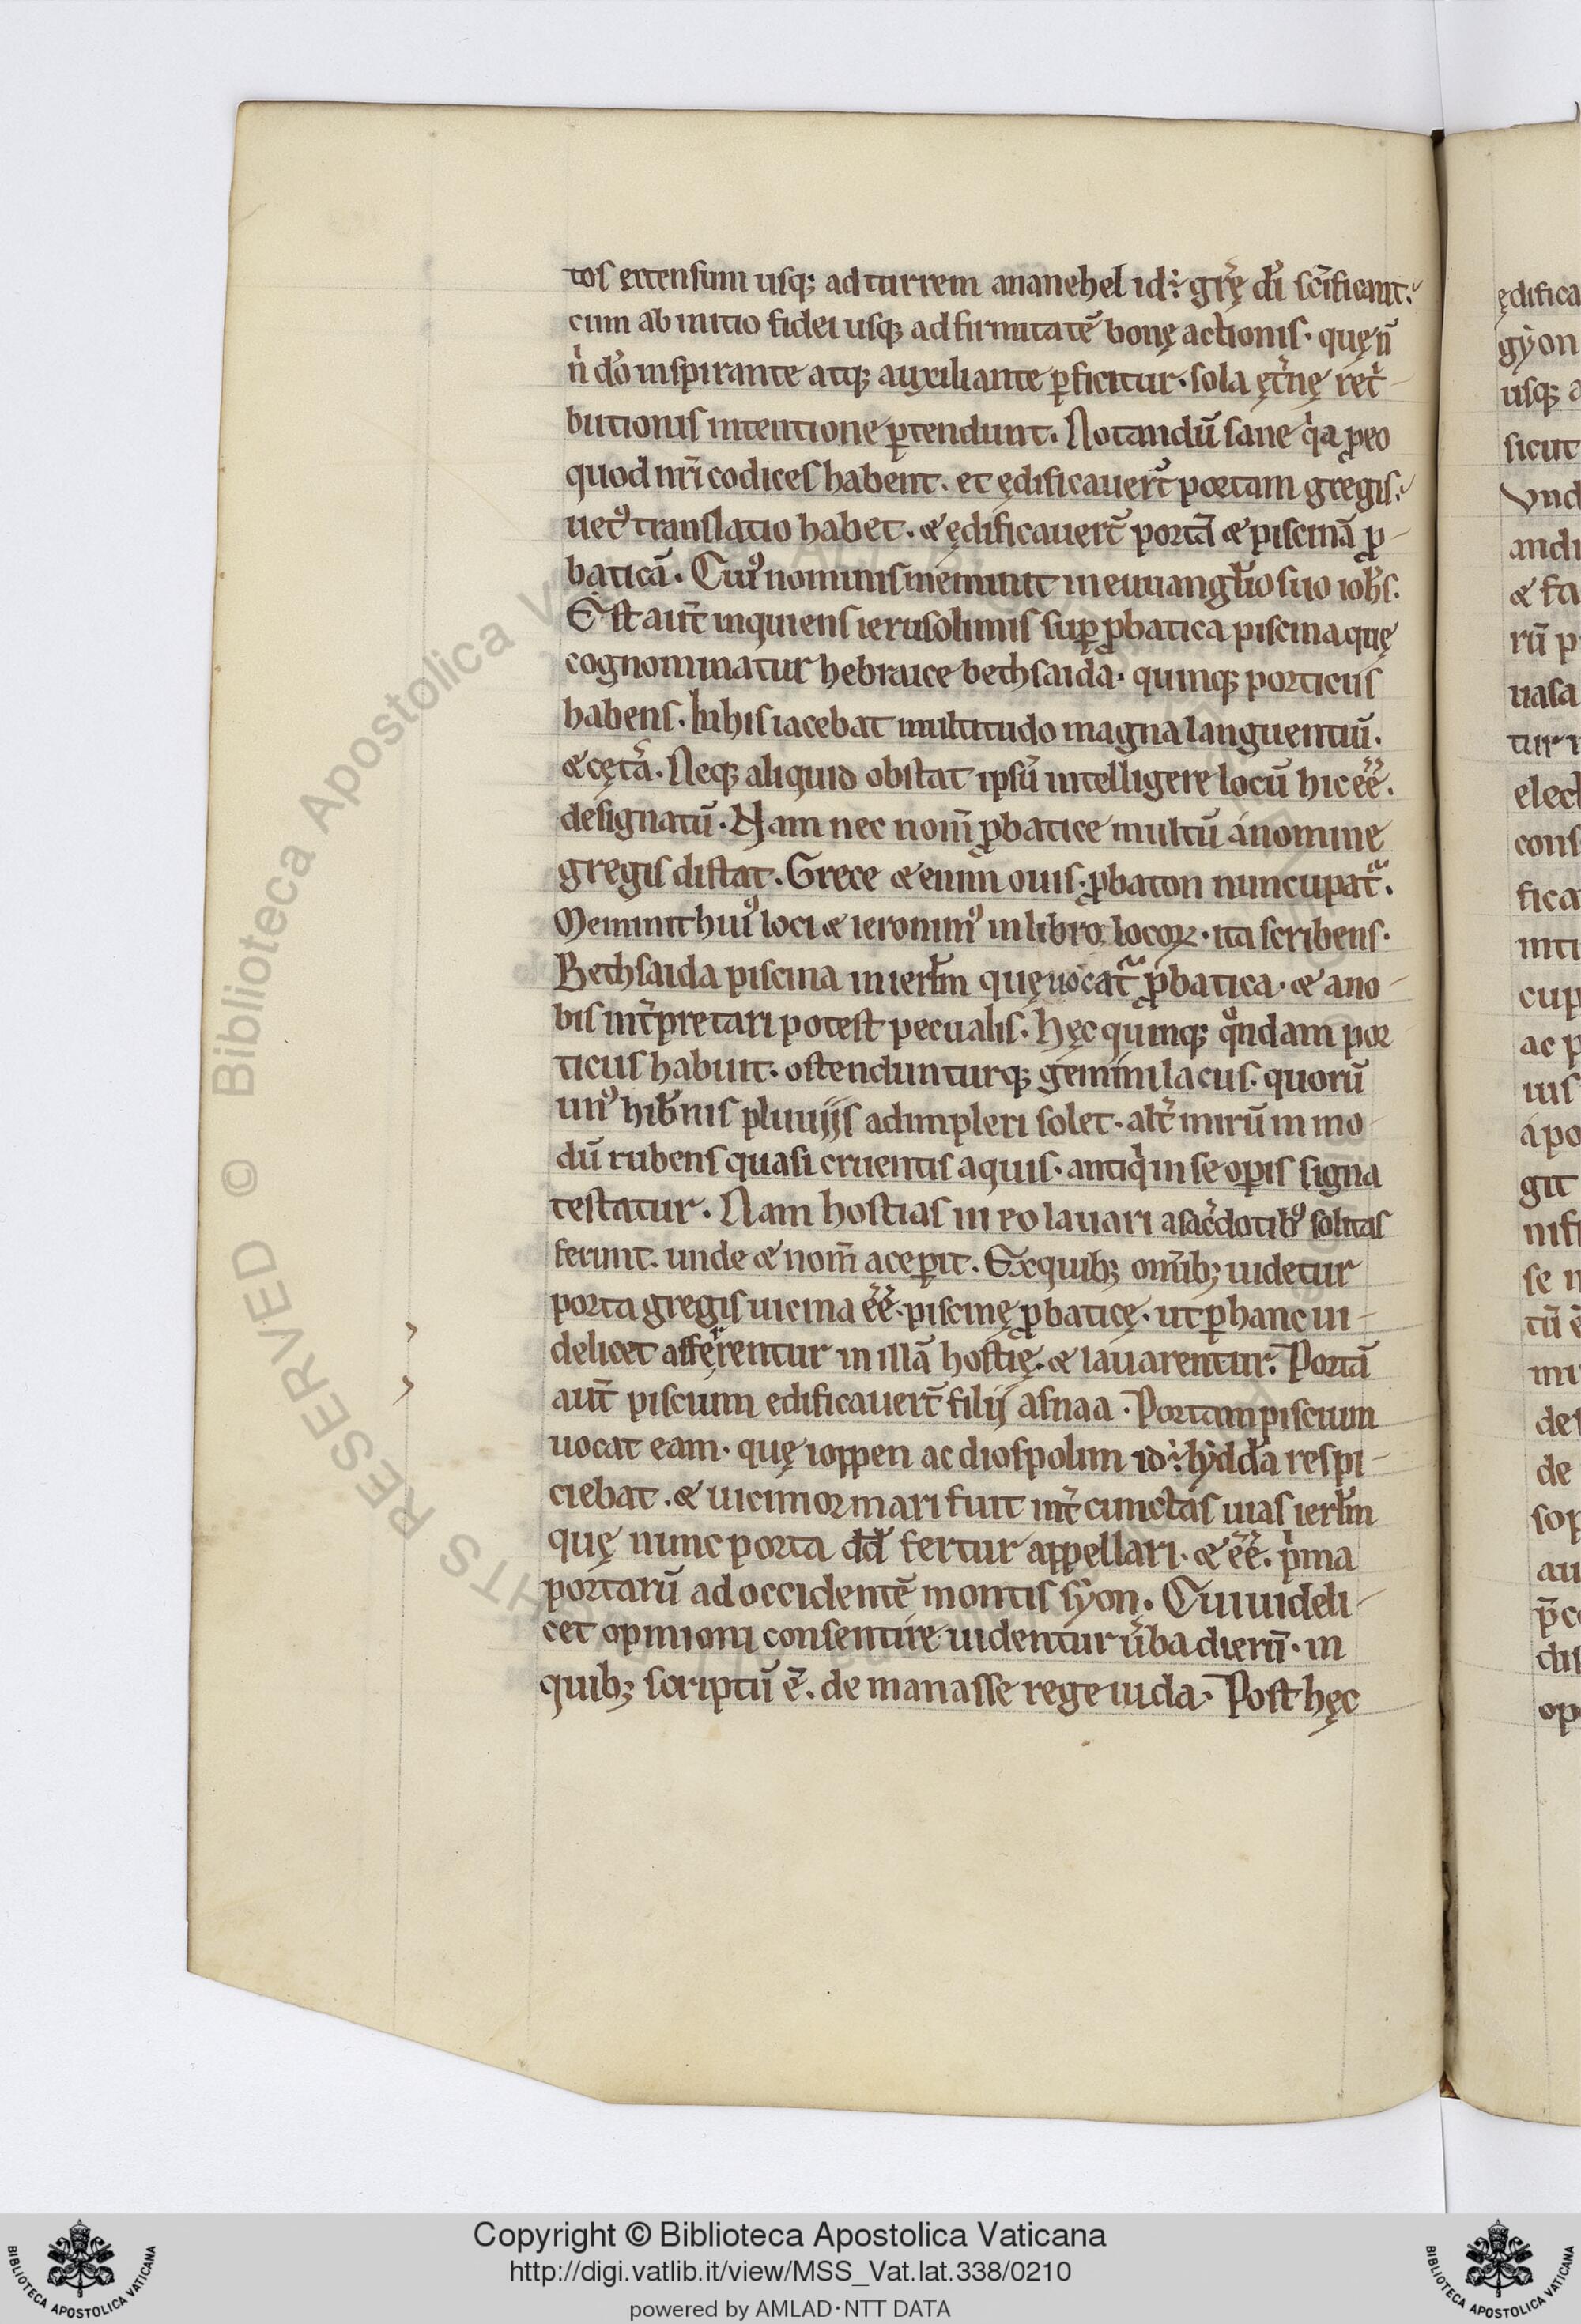 tos extensum usq; ad turrem ananehel id ÷ grę̄ dī sc̄ificant.
cum ab initio fidei usq; ad firmitatē bonę actionis. quę ñ
n̍ dō inspirante atq; auxiliante ꝑficitur. sola ęt̄nę ret̍
butionis intentione ꝑtendunt. Notandū sane q̍a ꝓ eo
quod nr̄i codices habent. et ędificauer̄t portam gregis.
uet᾽ translatio habet. & ędificauer̄t portā & piscinā ꝓ
baticā. Cui᾽ nominis meminit in euuanḡlio suo ioh̄s.
Est aūt inquiens ierusolimis suꝑ ꝓbatica piscina quę
cognominatur hebraice bethsaida. quinq; porticus
habens. In his iacebat multitudo magna languentiū.
& cęt̄a. Neq; aliquid obstat ipsū intelligere locū hic ēē.
designatū. Nam nec nom̄ ꝓbatice multū a nomine
gregis distat. Grece & enim ouis. ꝓbaton nuncupat̄.
Meminit hui᾽ loci & ieronim᾽ in libro locoꝝ. ita scribens.
Bethsaida piscina in ierl̄m quę uocat̄ ꝓbatica. & a no
bis int̄pretari potest pecualis. Hęc quinq; qͦndam por
ticus habuit. ostenduntur q; gemini lacus. quorū
un᾽ hib̄nis pluuijs adimpleri solet. alt̄ mirū in mo
dū rubens quasi cruentis aquis. antiq̍ in se oꝑis signa
testatur. Nam hostias in eo lauari a sac̄dotib᾽ solitas
ferunt. unde & nom̄ aceꝑit. Ex quib; omīb; uidetur
porta gregis uicina ēē. piscinę ꝓbaticę. ut ꝑ hanc ui
delicet afferrentur in illā hostię. & lauarentur. Portā
aūt piscium edificauer̄t filij asnaa. Portam piscium
uocat eam. quę ioppen ac diospolim id ÷ lydda respi
ciebat. & uicinior mari fuit int̄ cunctas uias ierl̄m
quę nunc porta dd̄ fertur appellari. & ēē. p̍ma
portarū ad occidentē montis syon. Cui uideli
cet opinioni consentire uidentur ūba dierū. in
quib; scriptū ē. de manasse rege iuda. Post hęc
ędifica
gyon
usq; a
sicut
Vnd
& fa
rū p
uasa
tur
elect
cons
fica
inti
cup
ac p
uis
apo
git
nifi
se
tū
de
sop
au
p̄c
dis
op
© Biblioteca Apostolica Vaticana
RIGHTS RESERVED
Copyright © Biblioteca Apostolica Vaticana
http://digi.vatlib.it/view/MSS_Vat.lat.338/0210
powered by AMLAD·NTT DATA
BIBLIOTECA APOSTOLICA VATICANA
BIBLIOTECA APOSTOLICA VATICANA